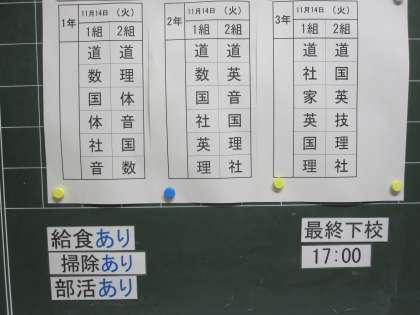 1年 11月14日（火）
1組 2組
道 道
数 理
国 体
体 音
社 国
音 数
2年 11月14日（火）
1組 2組
道 道
数 英
国 音
社 国
英 理
理 社
3年 11月14日（火）
1組 2組
道 道
社 国
家 英
英 技
国 理
理 社
給食あり
掃除あり
部活あり
最終下校
17:00